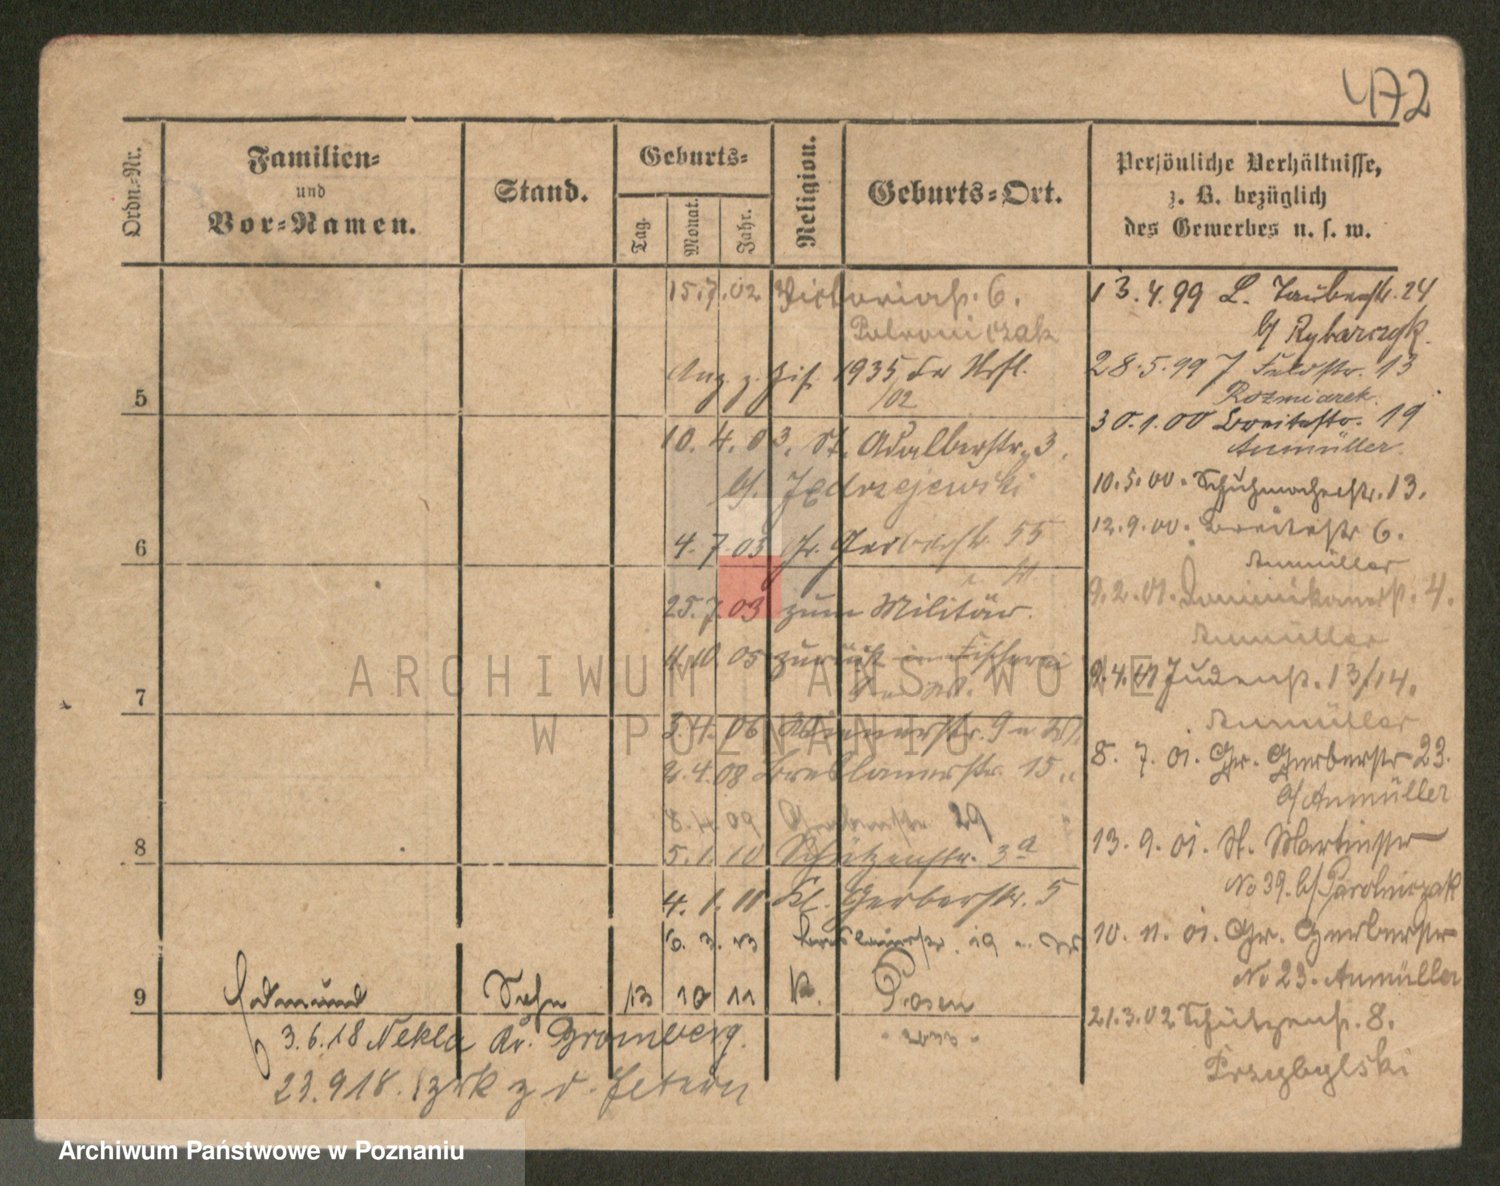 472
Ordn.-Nr.
Familien-
und
Vor-Namen.
Stand.
Geburts-
Tag.
Monat.
Jahr.
Religion.
Geburts-Ort.
Persönliche Verhältnisse,
z. B. bezüglich
des Gewerbes u. s. w.
15.7.02 Victoriastr. 6.
1935
/02
5
10.4.03. St. Adalbertstr. 3.
b/ Jedrzejewski
6
4.7.03 Gr. Gerberstr. 55
25.7.03 zum Militär.
4.10.05 zurück
7
3.4.06
2.4.08 Breslauerstr. 15
8.4.09 29
8
5.1.10 Schützenstr. 3a
4.1.11 Kl. Gerberstr. 5
6.3.13 Breslauerstr. 19
9 Edmund Sohn 13 10 11 K. Posen
3.6.18 Nekla Kr. Bromberg.
23.9.18. zrk z. d. Eltern
13.4.99 L. Taubenstr. 24
b/ Rybarczyk.
28.5.99 Feldstr. 13
Rozmiarek.
30.1.00 Breitestr. 19
Anmüller.
10.5.00. Schuhmacherstr. 13.
12.9.00. Breitestr 6.
Anmüller
9.2.01. Dominikanerstr. 4.
Anmüller
9.4.01 Judenstr. 13/14.
Anmüller
8.7.01. Gr. Gerberstr 23.
b/ Anmüller
13.9.01. St. Martinstr
No 39. b/
10.11.01. Gr. Gerberstr
No 23. Anmüller
21.3.02 Schützenstr. 8.
Przybylski
ARCHIWUM PAŃSTWOWE
W POZNANIU
Archiwum Państwowe w Poznaniu